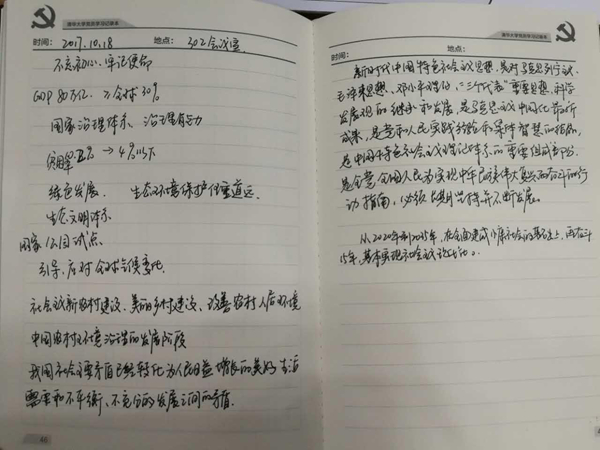 清华大学党员学习记录本
时间: 2017.10.18 地点: 302会议室
不忘初心、牢记使命
GDP 80万亿、占全球30%
国家治理体系、治理能力
贫困率 → 4%以下
绿色发展、 生态环境保护任重道远.
生态文明体系
国家公园试点
引导应对全球气候变化.
社会主义新农村建设、美丽乡村建设、改善农村人居环境
中国农村环境治理的发展阶段
我国社会主要矛盾已经转化为人民日益增长的美好生活
需要和不平衡、不充分的发展之间的矛盾.
46
清华大学党员学习记录本
时间: 地点:
新时代中国特色社会主义思想,是对马克思列宁主义、
毛泽东思想、邓小平理论、"三个代表"重要思想、科学
发展观的继承和发展,是马克思主义中国化最新
成果,是党和人民实践经验和集体智慧的结晶,
是中国特色社会主义理论体系的重要组成部分,
是全党全国人民为实现中华民族伟大复兴而奋斗的行
动指南,必须长期坚持并不断发展。
从2020年到2035年,在全面建成小康社会的基础上,再奋斗
15年,基本实现社会主义现代化。